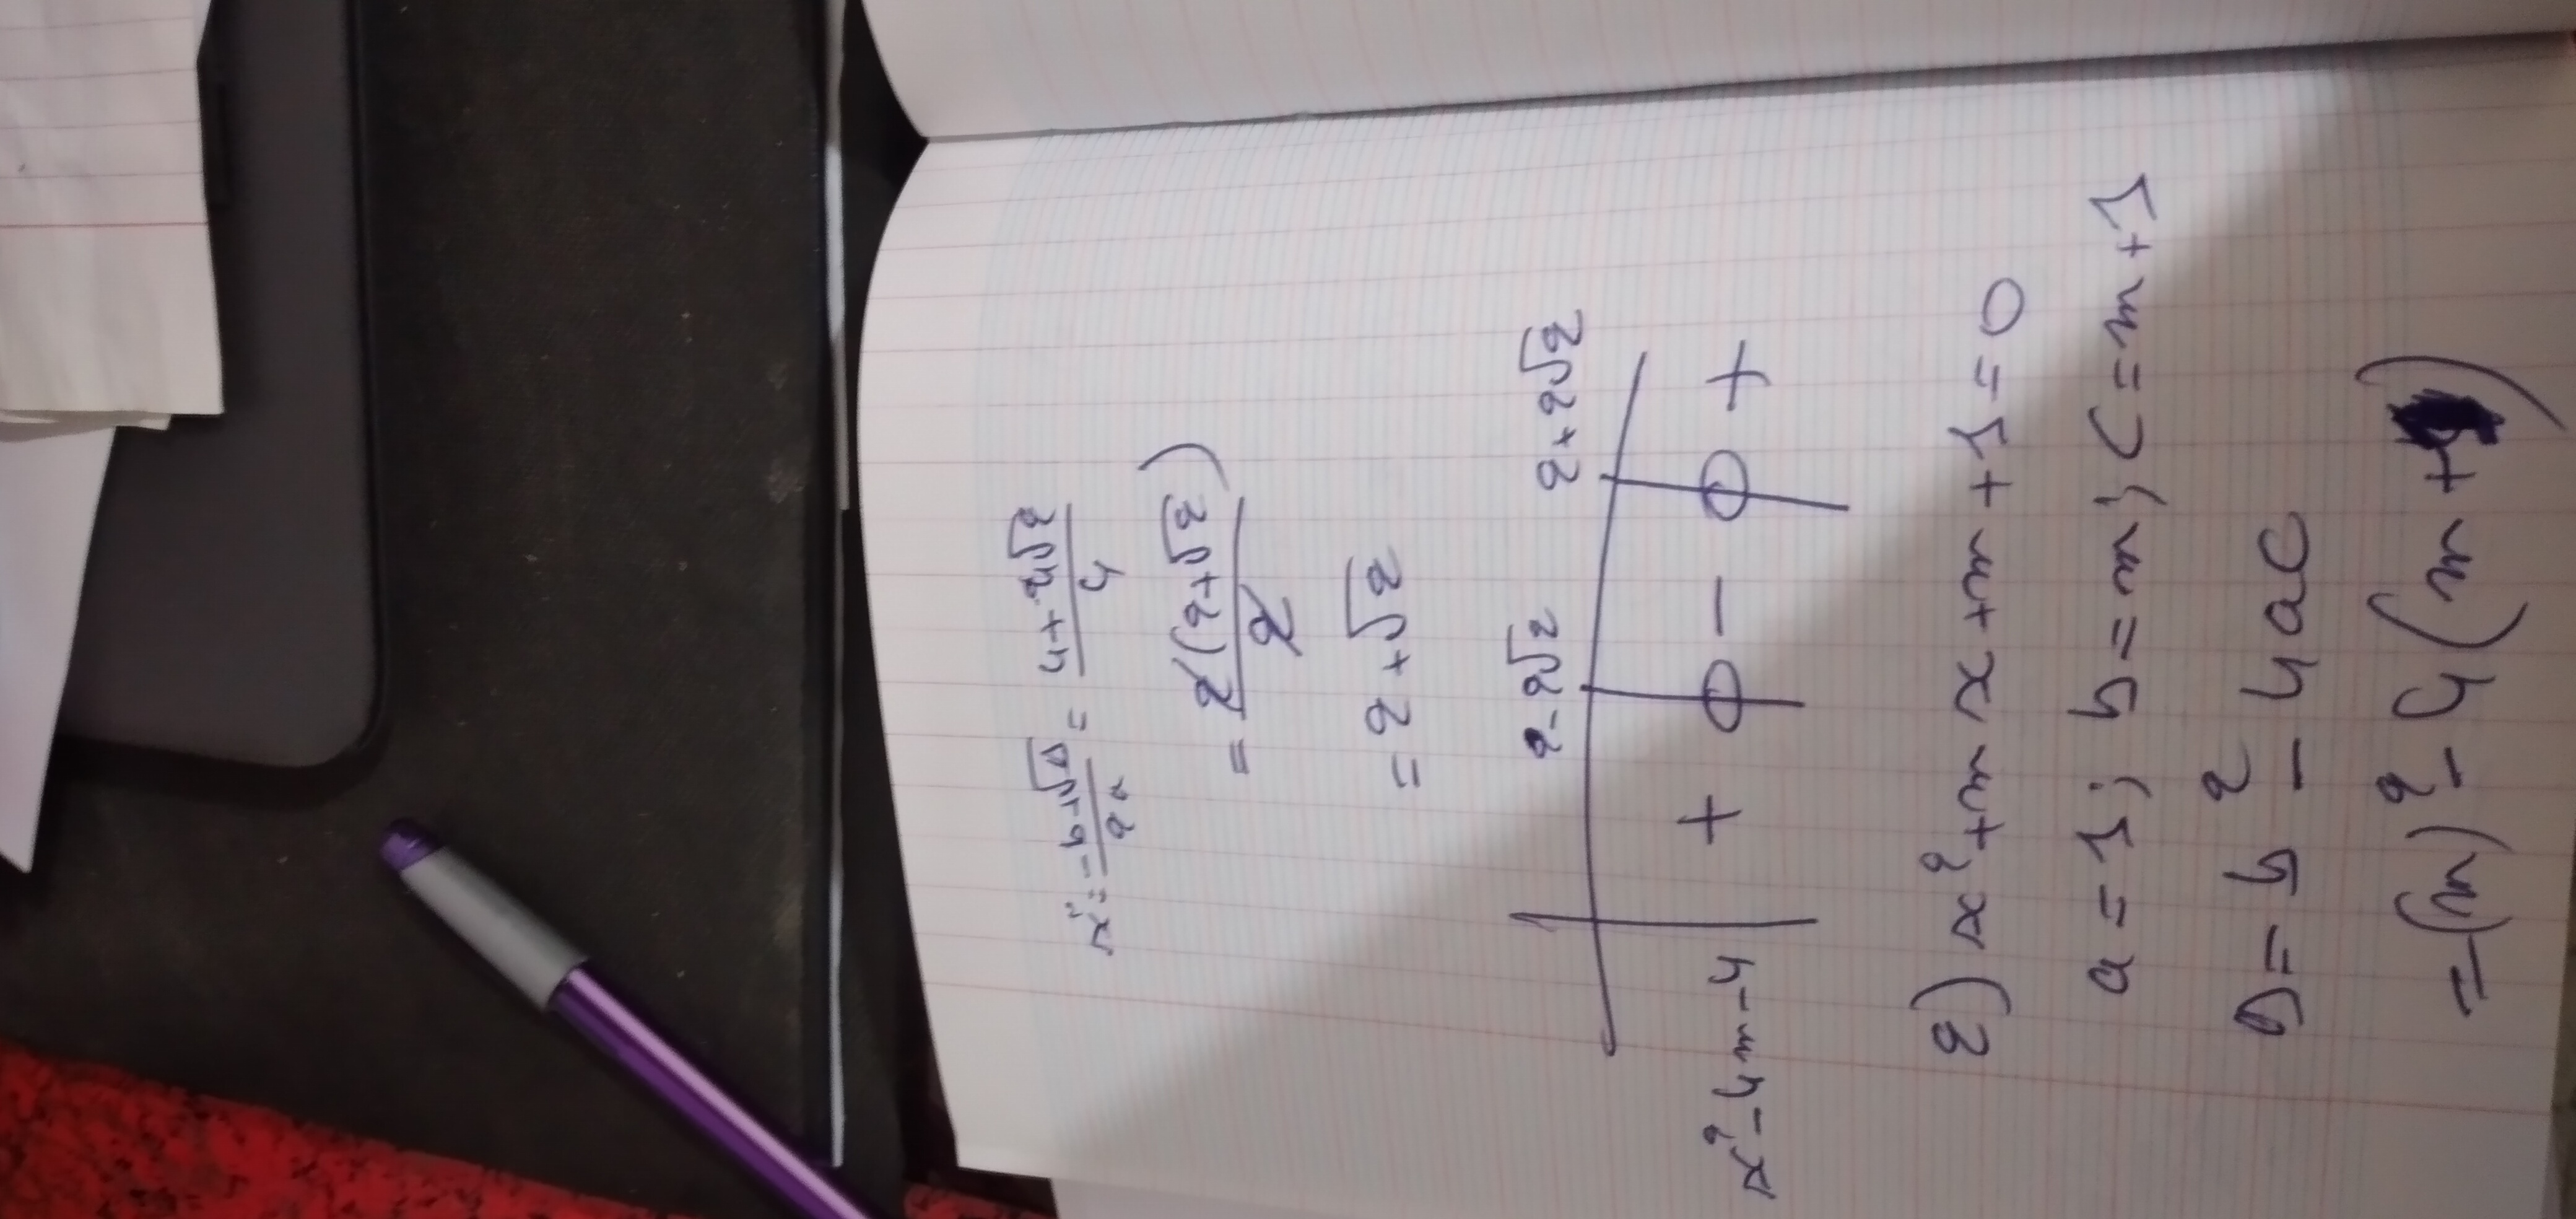 x₂ = (-b+√Δ)/(2a) = (4+4√2)/4
= 2(2+√2)/2
= 2+√2
2-2√2 2+2√2
x²-4m-4 + 0 - 0 +
2) x²+mx+m+1=0
a=1; b=m; C=m+1
Δ=b²-4ac
=(m)²-4(m+